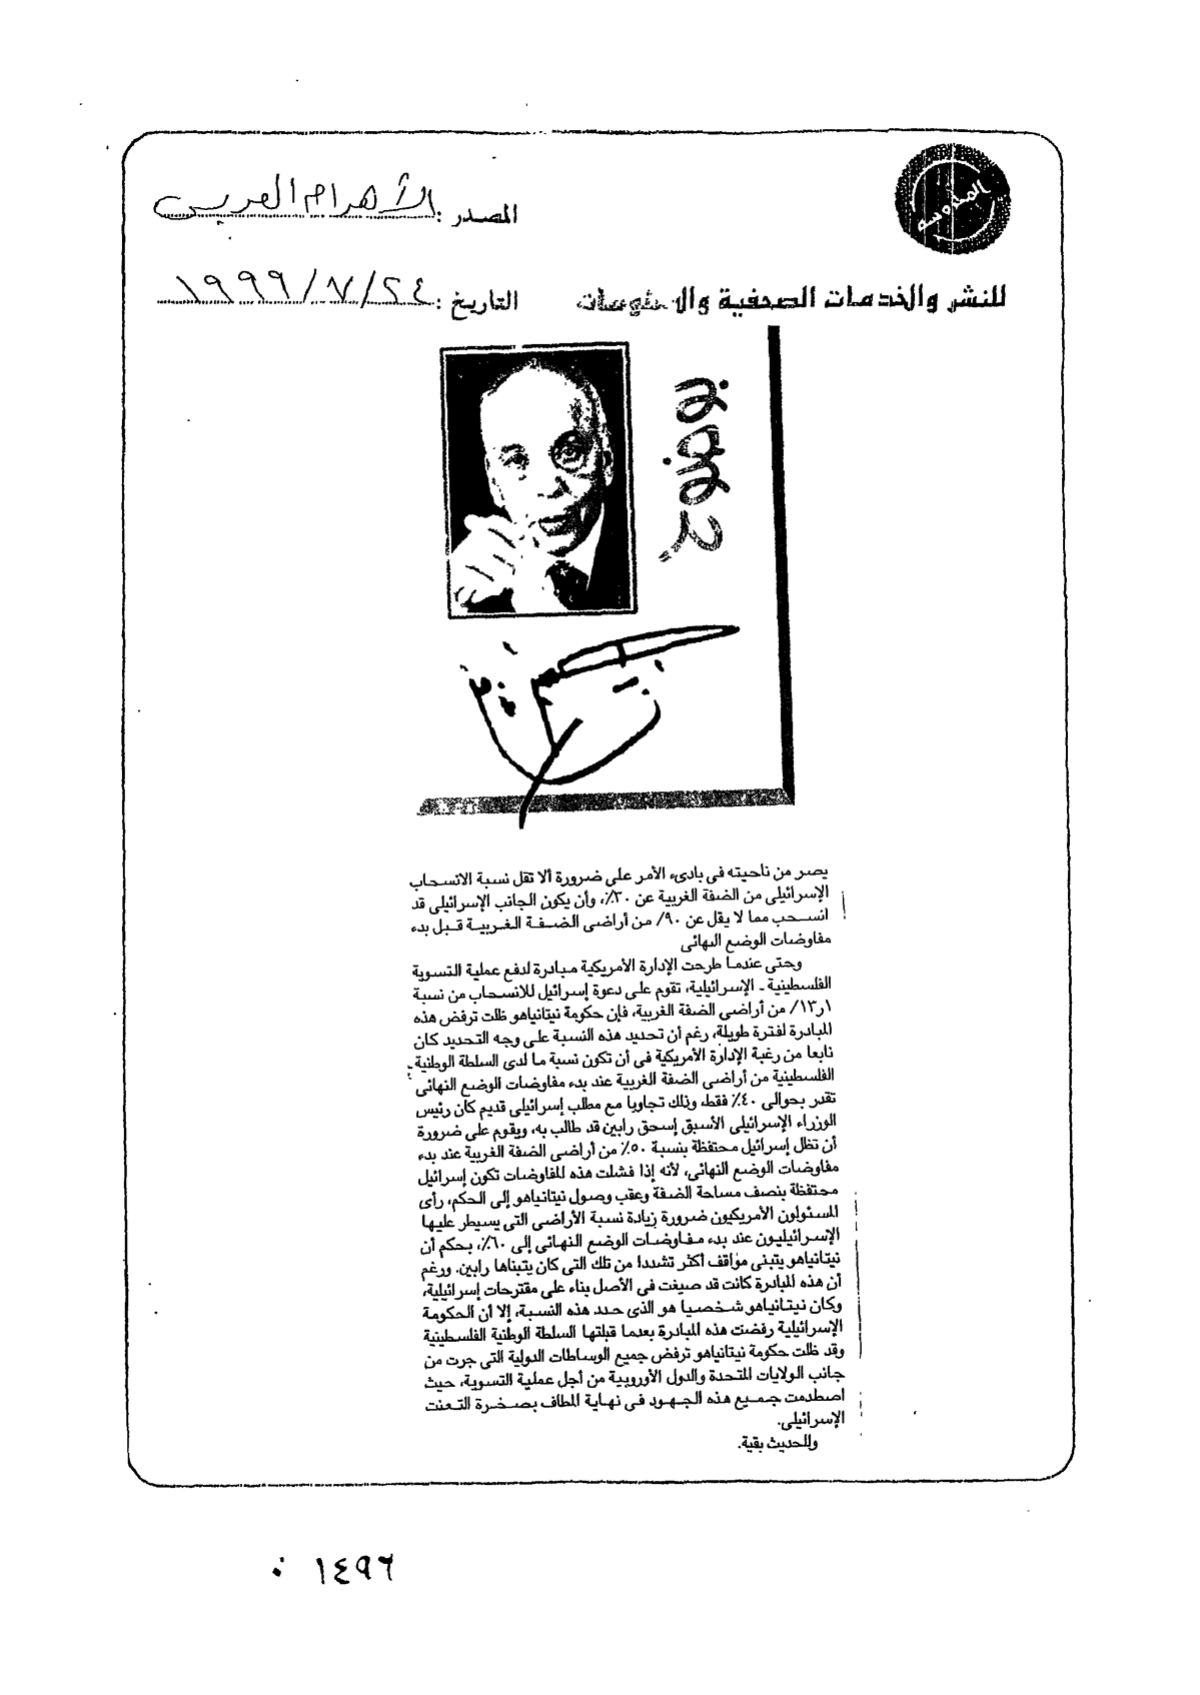 المصدر : الأهرام العربي
للنشر والخدمات الصحفية والمعلومات
التاريخ : ٢٤/٧/١٩٩٩
يصر من ناحيته فى بادىء الأمر على ضرورة ألا تقل نسبة الانسحاب
الإسرائيلى من الضفة الغربية عن ٣٠٪، وأن يكون الجانب الإسرائيلى قد
انسحب مما لا يقل عن ٩٠٪ من أراضى الضفة الغربية قبل بدء
مفاوضات الوضع النهائى
وحتى عندما طرحت الإدارة الأمريكية مبادرة لدفع عملية التسوية
الفلسطينية ـ الإسرائيلية، تقوم على دعوة إسرائيل للانسحاب من نسبة
١ر١٣٪ من أراضى الضفة الغربية، فإن حكومة نيتانياهو ظلت ترفض هذه
المبادرة لفترة طويلة، رغم أن تحديد هذه النسبة على وجه التحديد كان
نابعا من رغبة الإدارة الأمريكية فى أن تكون نسبة ما لدى السلطة الوطنية
الفلسطينية من أراضى الضفة الغربية عند بدء مفاوضات الوضع النهائى
تقدر بحوالى ٤٠٪ فقط، وذلك تجاوبا مع مطلب إسرائيلى قديم كان رئيس
الوزراء الإسرائيلى الأسبق إسحق رابين قد طالب به، ويقوم على ضرورة
أن تظل إسرائيل محتفظة بنسبة ٥٠٪ من أراضى الضفة الغربية عند بدء
مفاوضات الوضع النهائى، لأنه إذا فشلت هذه المفاوضات تكون إسرائيل
محتفظة بنصف مساحة الضفة وعقب وصول نيتانياهو إلى الحكم، رأى
المسئولون الأمريكيون ضرورة زيادة نسبة الأراضى التى يسيطر عليها
الإسرائيليون عند بدء مفاوضات الوضع النهائى إلى ٦٠٪، بحكم أن
نيتانياهو يتبنى مواقف أكثر تشددا من تلك التى كان يتبناها رابين. ورغم
أن هذه المبادرة كانت قد صيغت فى الأصل بناء على مقترحات إسرائيلية،
وكان نيتانياهو شخصيا هو الذى حدد هذه النسبة، إلا أن الحكومة
الإسرائيلية رفضت هذه المبادرة بعدما قبلتها السلطة الوطنية الفلسطينية
وقد ظلت حكومة نيتانياهو ترفض جميع الوساطات الدولية التى جرت من
جانب الولايات المتحدة والدول الأوروبية من أجل عملية التسوية، حيث
اصطدمت جميع هذه الجهود فى نهاية المطاف بصخرة التعنت
الإسرائيلى.
وللحديث بقية.
١٤٩٦